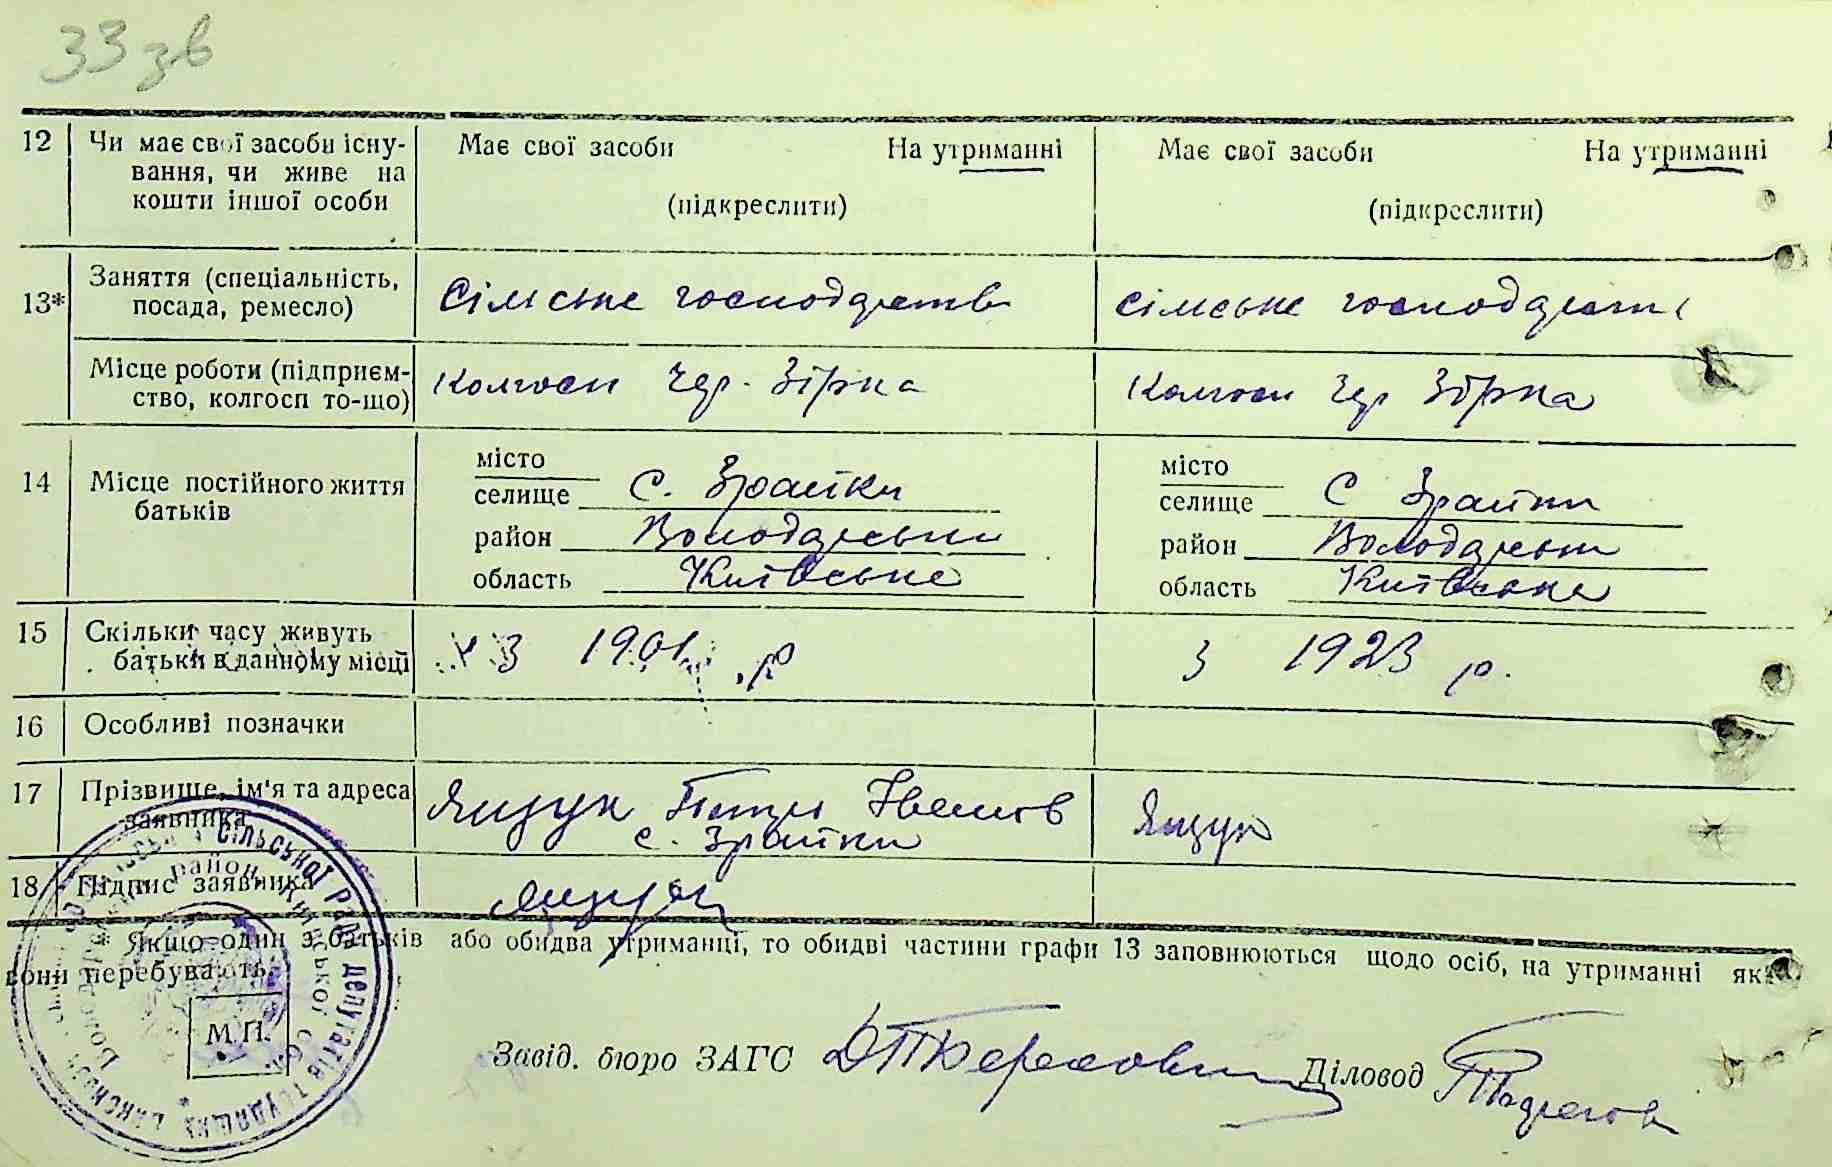 33 зв
12 Чи має свої засоби існу- Має свої засоби На утриманні Має свої засоби На утриманні
вання, чи живе на
кошти іншої особи (підкреслити) (підкреслити)
13* Заняття (спеціальність, посада, ремесло) Сільське господарств сільське господарств
Місце роботи (підприєм-
ство, колгосп то-що) Колгосп Чер. Зірка Колгосп Чер Зірка
14 Місце постійного життя
батьків
місто місто
селище С. Зрайки селище С Зрайки
район Володарськи район Володарськи
область Київське область Київське
15 Скільки часу живуть
батьки в данному місці з 1901 р з 1923 р.
16 Особливі позначки
17 Прізвище, ім'я та адреса
заявника Ящук Іванов Ящук
с. Зрайки
18 Підпис заявника Ящук
* Якщо один з батьків або обидва утриманці, то обидві частини графи 13 заповнюються щодо осіб, на утриманні яких
вони перебувають.
М.П.
Сільської Ради депутатів трудящих
район, Київської обл.
Завід. бюро ЗАГС Діловод